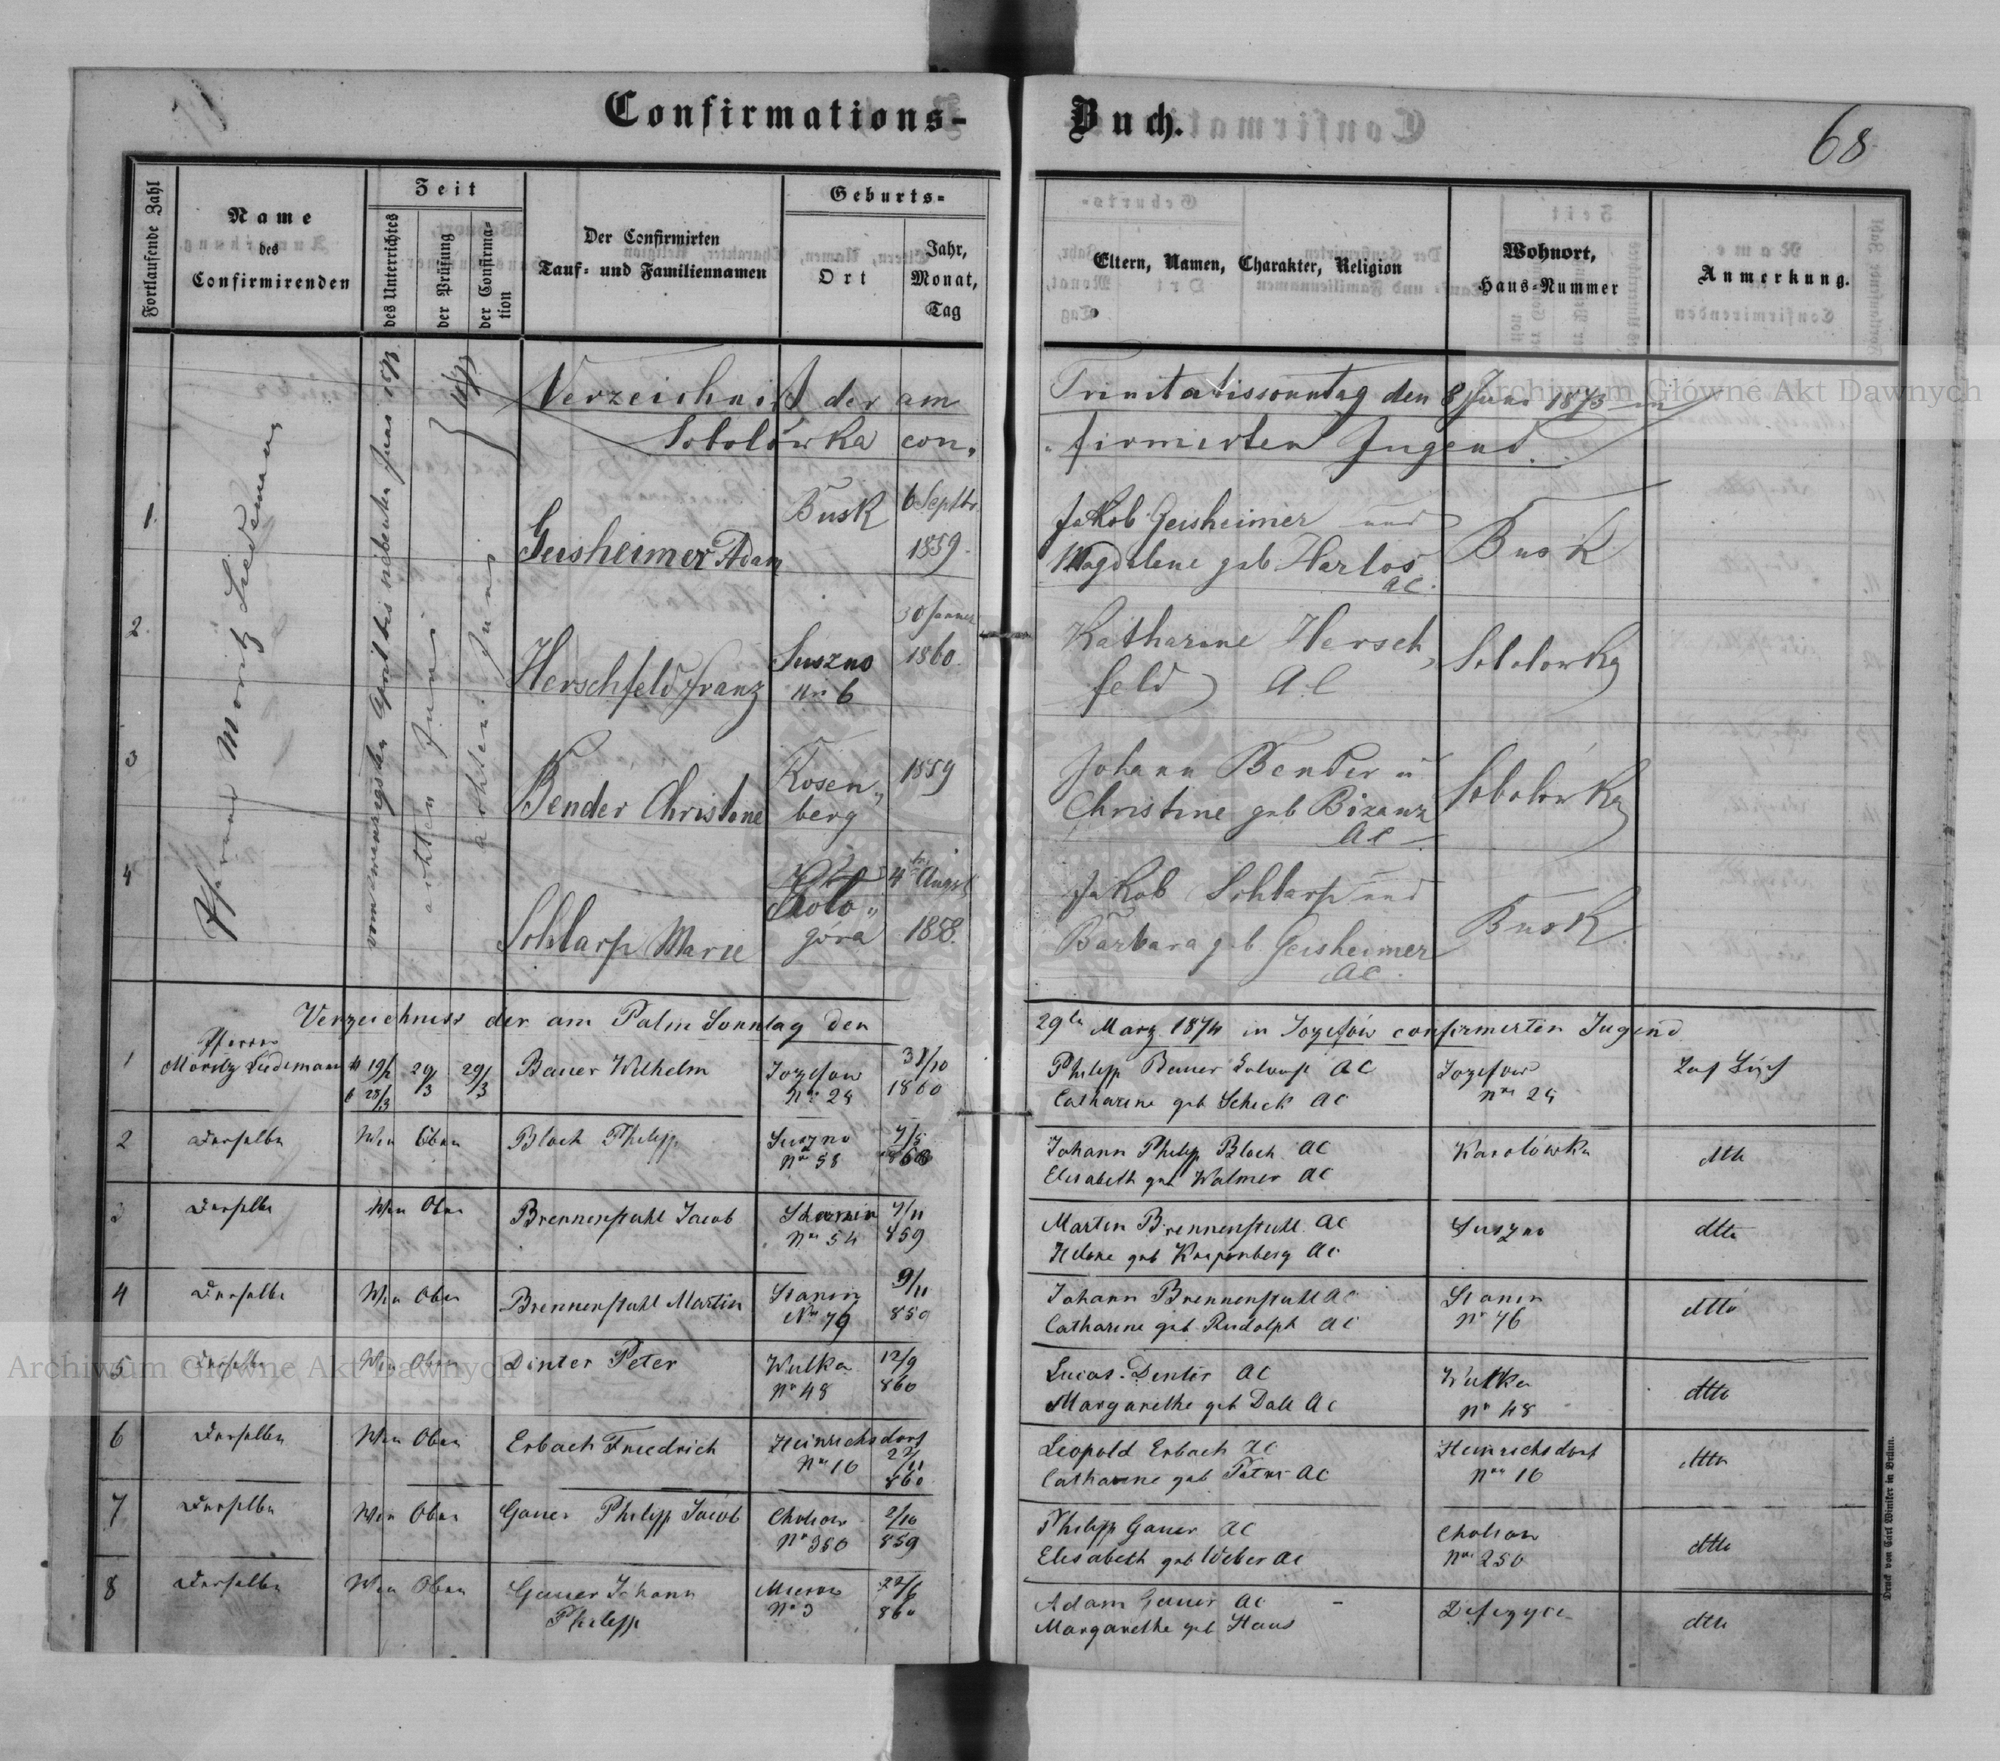 Confirmations-Buch.
68
Fortlaufende Zahl
Name
des
Confirmirenden
Zeit
des Unterrichtes
der Prüfung
der Confirma-
tion
Der Confirmirten
Tauf- und Familiennamen
Geburts-
Ort
Jahr,
Monat,
Tag
Eltern, Namen, Charakter, Religion
Wohnort,
Haus-Nummer
Anmerkung.
Verzeichniß der am Trinitatissonntag den 8 Juni 1873 in
Sobolówka con-firmirten Jugend.
Pfarrer Moritz Liedemann
achten Juni
achten Juni
1.
Geisheimer Adam
Busk
6 Septbr.
1859.
Jakob Geisheimer und
Magdalene geb Harlos
AC.
Busk
2.
Herschfeld Franz
Suszno
Nr 6
30 Jänner
1860.
Katharine Hersch
feld AC
Sobolowka
3
Bender Christine
Rosen-
berg
1859
Johann Bender u
Christine geb Bizanz
AC
Sobolówka
4
Schlarp Marie
góra
4 Augst
1858.
Jakob Schlarp und
Barbara geb Geisheimer
AC.
Busk
Verzeichniss der am Palm Sonntag den 29 März 1874 in Jozefów confirmirten Jugend
1
Pfarrer
Moritz Liedemann
29/3
29/3
Bauer Wilhelm
Jozefow
Nr 28
31/10
1860
Philipp Bauer AC
Catharine geb Scheck AC
Jozefow
2
Derselbe
Wie Oben
Bloch Philipp
Suszno
Nr 58
Johann Philipp Bloch AC
Elisabeth geb Walmer AC
Karolówka
dtto
3
Derselbe
Wie Oben
Brennenstuhl Jacob
Nr 54
7/11
859
Martin Brennenstuhl AC
Helene geb Krepenberg AC
Suszno
dtto
4
Derselbe
Wie Oben
Brennenstuhl Martin
Stanin
Nr 76
9/11
859
Johann Brennenstuhl AC
Catharine geb Rudolph AC
Stanin
Nr 76
dtto
5
Derselbe
Wie Oben
Dinter Peter
Wulka
Nr 48
12/9
860
Lucas Dinter AC
Margarethe geb Dall AC
Wulka
Nr 48
dtto
6
Derselbe
Wie Oben
Erbach Friedrich
Heinrichsdorf
Nr 10
860
Leopold Erbach AC
Catharine geb AC
Heinrichsdorf
Nr 10
dtto
7
Derselbe
Wie Oben
Gauer Philipp Jacob
Cholojow
2/10
859
Philipp Gauer AC
Elisabeth geb Weber AC
Cholojow
Nr 250
dtto
8
Derselbe
Wie Oben
Gauer Johann
Philipp
Mierow
Nr 3
22/6
860
Adam Gauer AC
Margarethe geb Haus
dtto
Druck von Carl Winiker in Brünn.
Archiwum Główne Akt Dawnych
Archiwum Główne Akt Dawnych